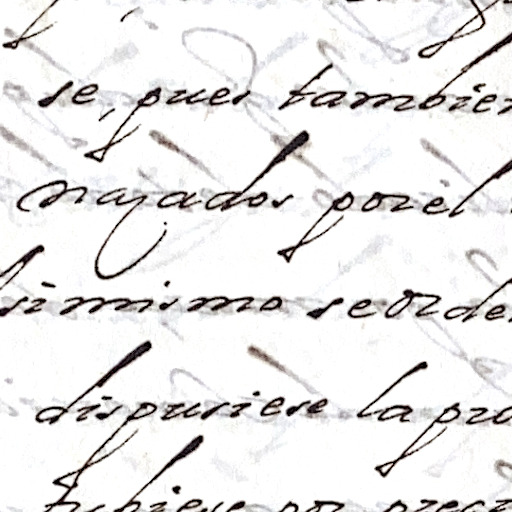 se, pues tambien
najados por el
simismo se orde
dispusiese la pro
tubiese por preci